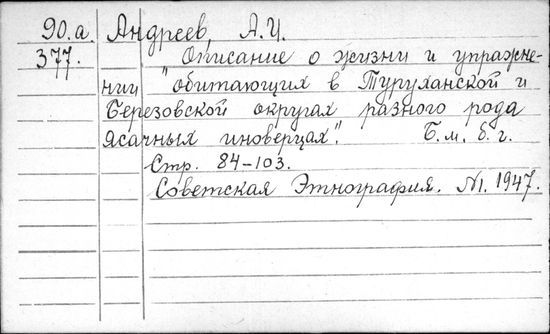 90.а. Андреев, А.И.
377. Описание о жизни и упражне-
нии "обитающих в Туруханской и
Березовской округах разного рода
ясачных иноверцах". Б.м. б.г.
Стр. 84-103.
Советская Этнография. №1. 1947.